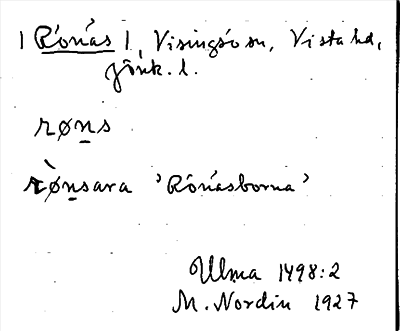 | Rönäs |, Visingsö sn, Vista hd,
Jönk. l.
røns
rø̀nsara 'Rönäsborna'
Ulma 1498:2
M. Nordin 1927